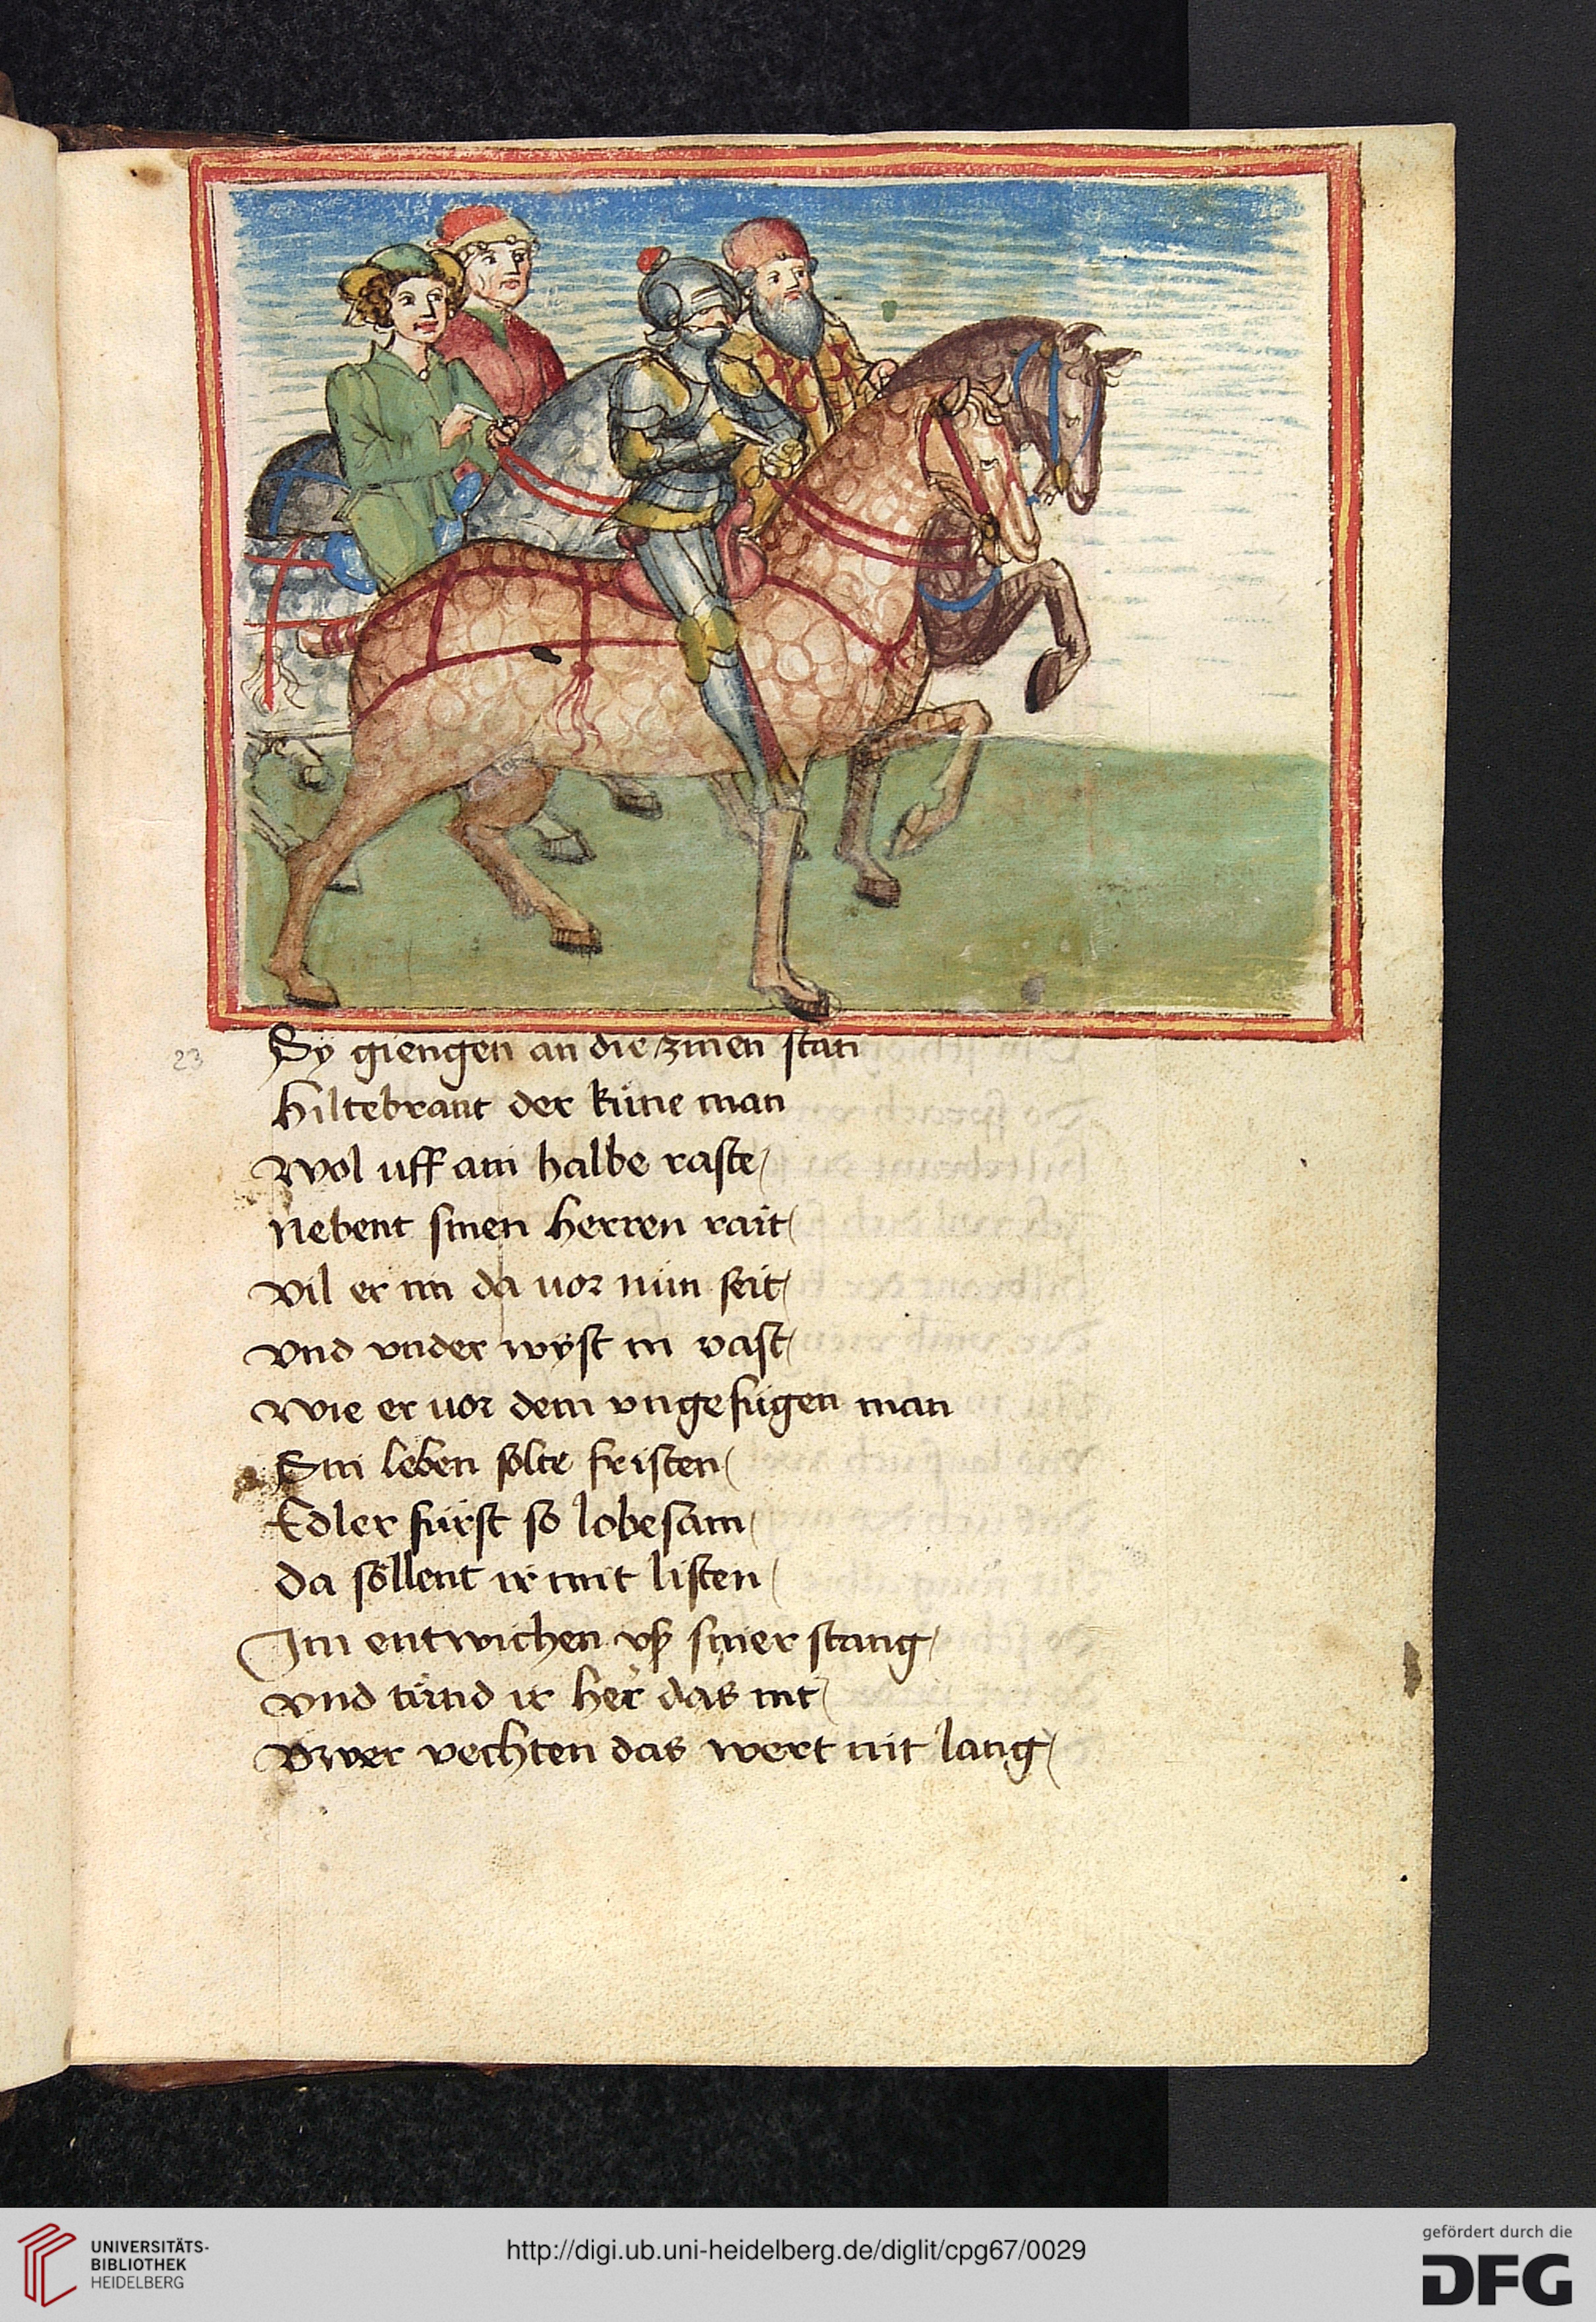 23
Sy giengen an die zinen stan
Hiltebrant der küne man
Wol uff ain halbe raste/
Nebent sinen herren rait/
Vil er im da vor nün seit/
Vnd vnder wyst in vast/
Wie er vor dem vngefügen man
Sin leben solte fristen/
Edler fürst so lobesam/
Da söllent ir mit listen/
Im entwichen vß siner stang/
Vnd tünd ir her das nit/
Vwer vechten das wert nit lang/
UNIVERSITÄTS-
BIBLIOTHEK
HEIDELBERG
http://digi.ub.uni-heidelberg.de/diglit/cpg67/0029
gefördert durch die
DFG